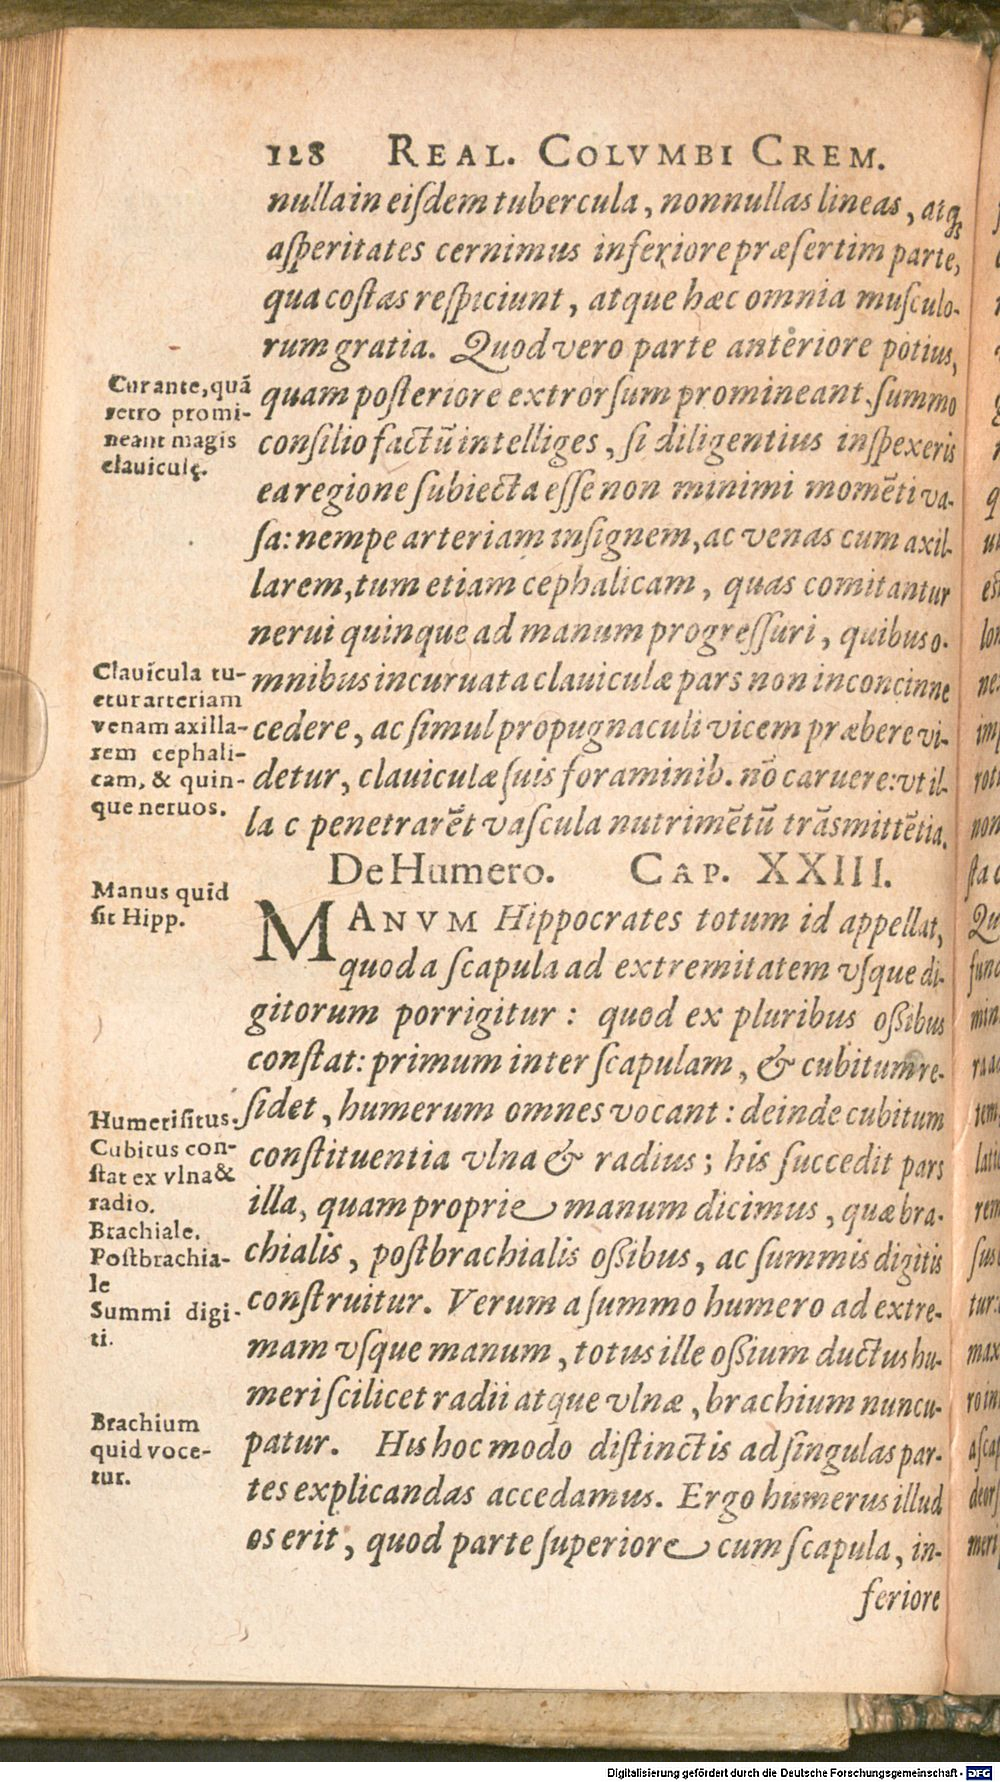 128 REAL. COLVMBI CREM.
nulla in eiſdem tubercula, nonnullas lineas, atq;
aſperitates cernimus inferiore præſertim parte,
qua coſtas reſpiciunt, atque hæc omnia muſculo-
rum gratia. Quod vero parte anteriore potius,
quam poſteriore extrorſum promineant, ſummo
conſilio factũ intelliges, ſi diligentius inſpexeris
ea regione ſubiecta eſſe non minimi momẽti va-
ſa: nempe arteriam inſignem, ac venas cum axil-
larem, tum etiam cephalicam, quas comitantur
nerui quinque ad manum progreſſuri, quibus o-
mnibus incuruata clauiculæ pars non inconcinne
cedere, ac ſimul propugnaculi vicem præbere vi-
detur, clauiculæ ſuis foraminib. nõ caruere: vt il-
la c penetrarẽt vaſcula nutrimẽtũ trãſmittẽtia.
Cur ante, quã
retro promi-
neant magis
clauiculę.
Clauicula tu-
etur arteriam
venam axilla-
rem cephali-
cam, & quin-
que neruos.
De Humero. CAP. XXIII.
MANVM Hippocrates totum id appellat,
quod a ſcapula ad extremitatem vſque di-
gitorum porrigitur: quod ex pluribus oſſibus
conſtat: primum inter ſcapulam, & cubitum re-
ſidet, humerum omnes vocant: deinde cubitum
conſtituentia vlna & radius; his ſuccedit pars
illa, quam proprie manum dicimus, quæ bra-
chialis, poſtbrachialis oſſibus, ac ſummis digitis
conſtruitur. Verum a ſummo humero ad extre-
mam vſque manum, totus ille oſſium ductus hu-
meri ſcilicet radii atque vlnæ, brachium nuncu-
patur. His hoc modo diſtinctis ad ſingulas par-
tes explicandas accedamus. Ergo humerus illud
os erit, quod parte ſuperiore cum ſcapula, in-
feriore
Manus quid
ſit Hipp.
Humeri ſitus.
Cubitus con-
ſtat ex vlna &
radio.
Brachiale.
Poſtbrachia-
le
Summi digi-
ti.
Brachium
quid voce-
tur.
Digitalisierung gefördert durch die Deutsche Forschungsgemeinschaft - DFG